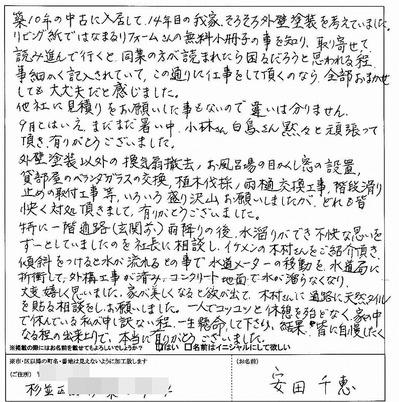 築10年の中古に入居して、14年目の我家、そろそろ外壁塗装を考えていました。
リビング紙ではなまるリフォームさんの無料小冊子の事を知り、取り寄せて
読み進んで行くと、同業の方が読まれたら困るだろうと思われる程、
事細かく記入されていて、この通りに工事をして頂くのなら、全部おまかせ
しても大丈夫だと感じました。
他社に見積りをお願いした事もないので違いは分りません。
9月とはいえ、まだまだ暑い中、小林さん白鳥さん黙々と頑張って
頂き、有りがとうございました。
外壁塗装以外の換気扇撤去、お風呂場の目かくし窓の設置、
貸部屋のベランダガラスの交換、植木伐採、雨樋交換工事、階段滑り
止めの取付工事等、いろいろ盛り沢山お願いしましたが、どれも皆
快く対処頂きまして、有りがとうございました。
特に一階通路(玄関前)雨降りの後、水溜りができ不快な思いを
ずーとしていましたのを社長に相談し、イケメンの木村さんをご紹介頂き、
傾斜をつけると水が流れるとの事で水道メーターの移動を、水道局に
折衝して、外構工事が済み、コンクリート地面で水が溜らなくなり、
大変嬉しく思いました。家が美しくなると欲が出て、木村さんに通路に天然タイル
を貼る相談をしお願いしました。一人でコツコツと休憩を殆どなく、家の中
で休んでいる私が申し訳ない程、一生懸命して下さり、結果、皆に自慢したく
なる程の出来上りで、本当に有りがとうございました。
※掲載の際にはお名前を載せてもよろしいでしょうか？ はい 名前はイニシャルにして欲しい
※市・区以降の町名・番地は見えないように加工致します
(ご住所) 〒
杉並区
(お名前)
安田 千恵